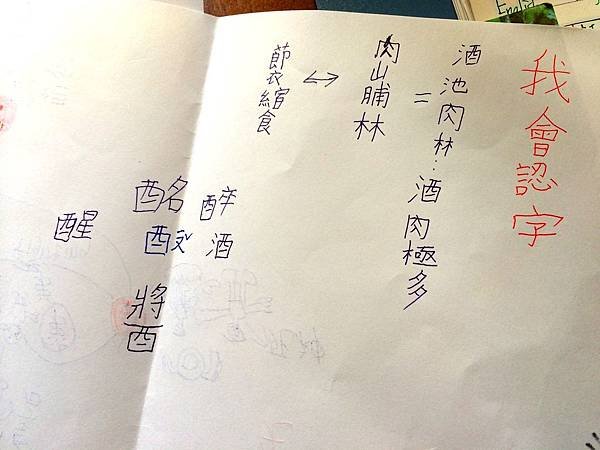 English
我會認字
酒池肉林：酒肉極多
=
肉山脯林
↔
節衣縮食
醉
酒
酩
醬
醒